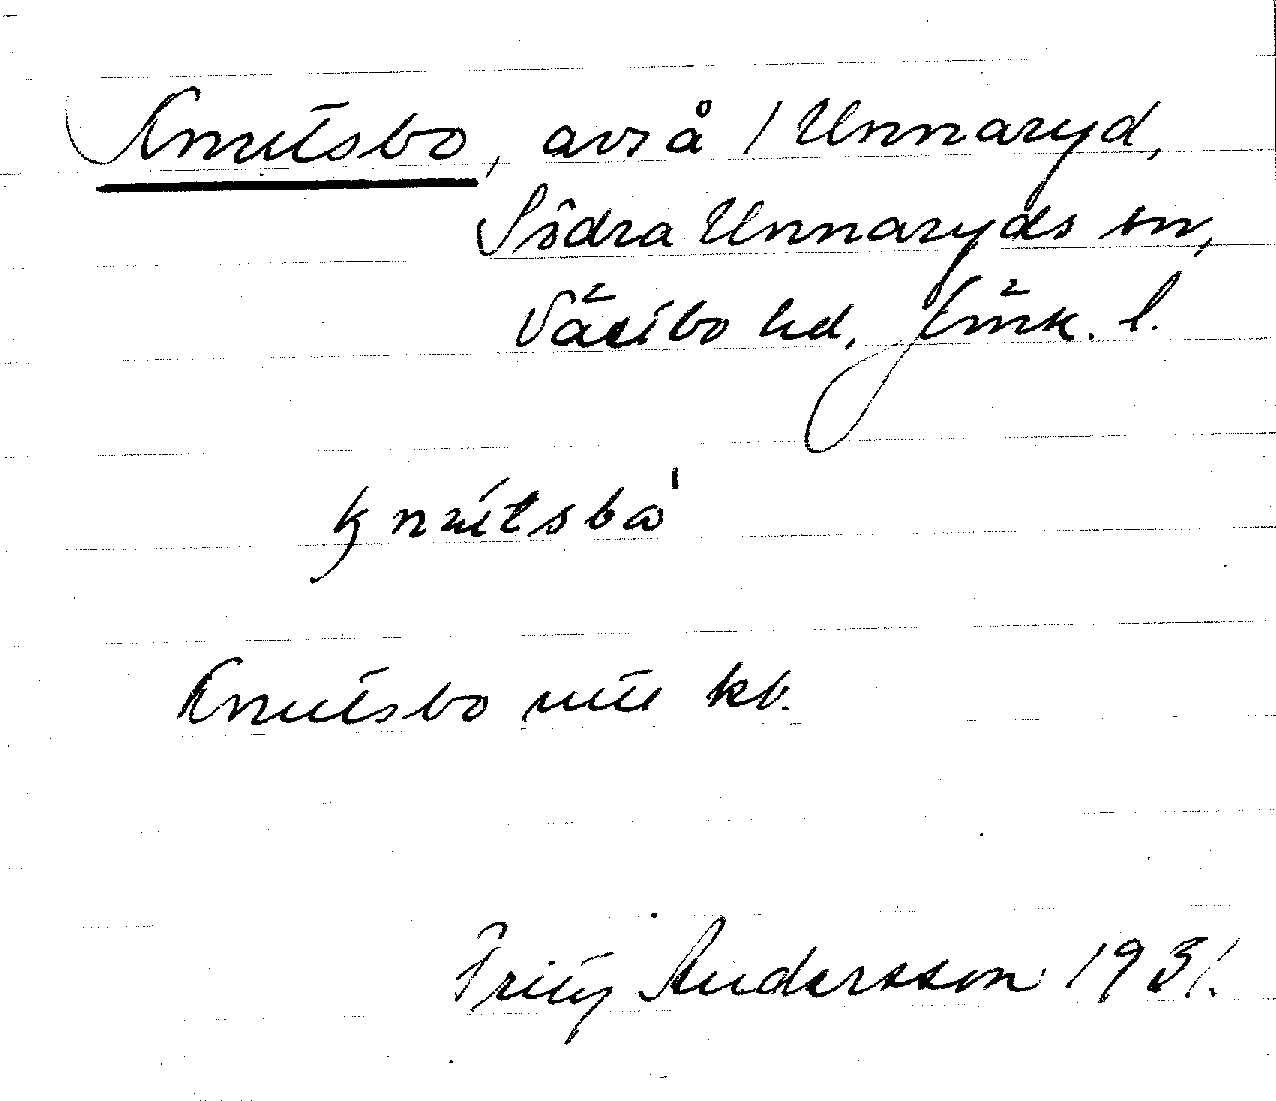 Knutsbo, avs å 1 Unnaryd,
Södra Unnaryds sn,
Västbo hd, Jönk. l.
knutsbo
Knutsbo kb.
Fritz Andersson 1931.